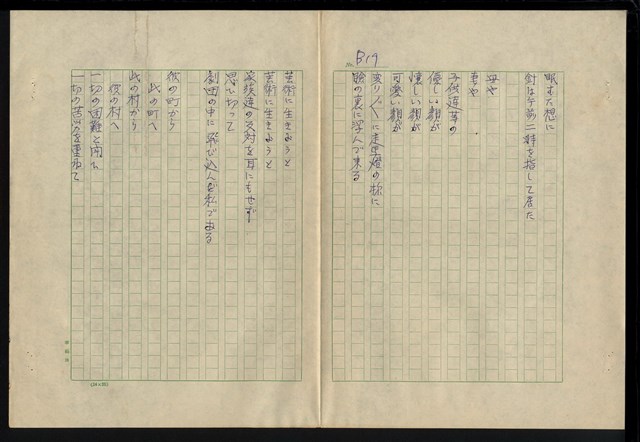 No. B19
眠むた想に
針は午前二時を指して居た
母や
妻や
子供達等の
優しい顔が
懐しい顔が
可愛い顔が
変り〲に走馬燈の様に
瞼の裏に浮んで来る
芸術に生きようと
芸術に生きようと
家族達の反対を耳にもせず
思ひ切って
劇団の中に飛び込んだ私である
彼の町から
此の町へ
此の村から
彼の村へ
一切の困難と闘ひ
一切の苦労を重ねて
(24×20)